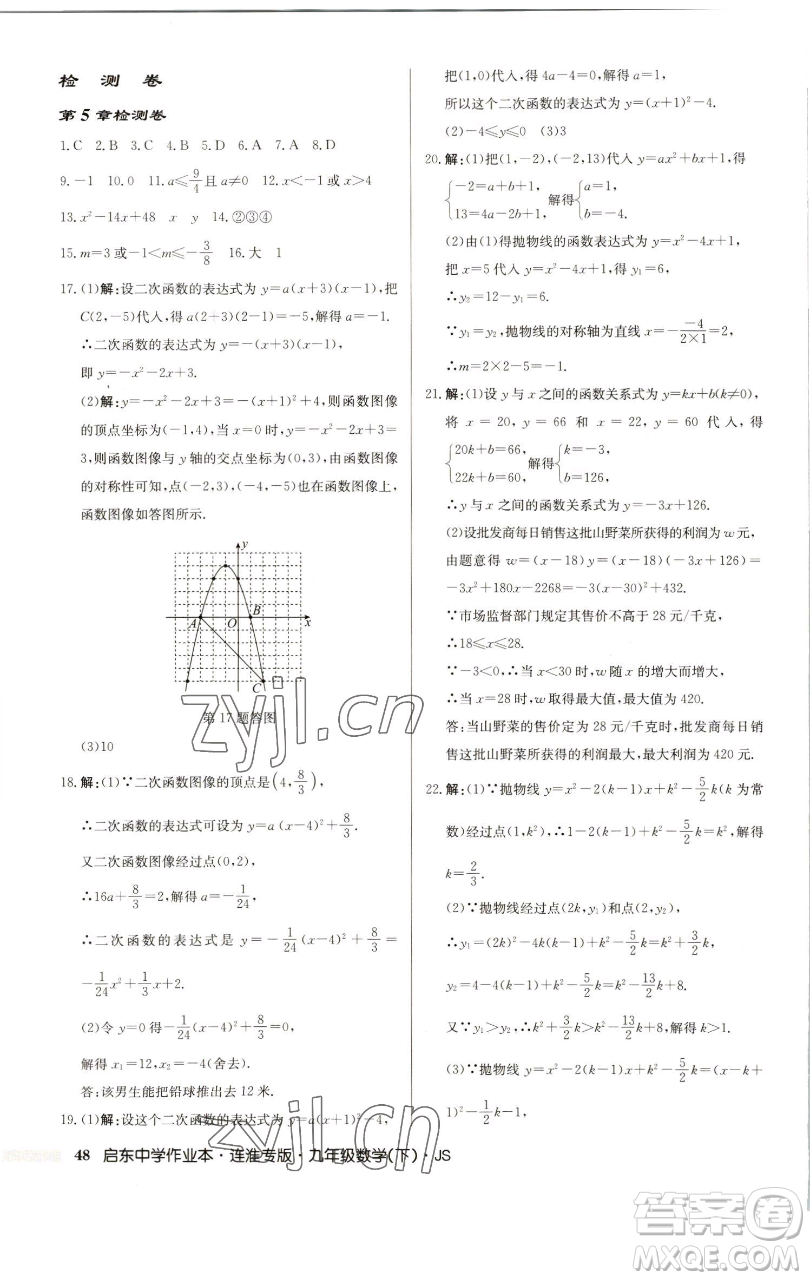 检 测 卷
第5章检测卷
1.C 2.B 3.C 4.B 5.D 6.A 7.A 8.D
9.-1 10.0 11.a≤9/4且a≠0 12.x<-1或x>4
13.x²-14x+48 x y 14.②③④
15.m=3或-1<m≤-3/8 16.大 1
17.(1)解:设二次函数的表达式为y=a(x+3)(x-1),把
C(2,-5)代入,得a(2+3)(2-1)=-5,解得a=-1.
∴二次函数的表达式为y=-(x+3)(x-1),
即y=-x²-2x+3.
(2)解:y=-x²-2x+3=-(x+1)²+4,则函数图像
的顶点坐标为(-1,4),当x=0时,y=-x²-2x+3=
3,则函数图像与y轴的交点坐标为(0,3),由函数图像
的对称性可知,点(-2,3),(-4,-5)也在函数图像上,
函数图像如答图所示.
y
A O B x
C
第17题答图
(3)10
18.解:(1)∵二次函数图像的顶点是(4,8/3),
∴二次函数的表达式可设为y=a(x-4)²+8/3.
又二次函数图像经过点(0,2),
∴16a+8/3=2,解得a=-1/24,
∴二次函数的表达式是y=-1/24(x-4)²+8/3=
-1/24x²+1/3x+2.
(2)令y=0得-1/24(x-4)²+8/3=0,
解得x₁=12,x₂=-4(舍去).
答:该男生能把铅球推出去12米.
19.(1)解:设这个二次函数的表达式为y=a(x+1)²-4,
把(1,0)代入,得4a-4=0,解得a=1,
所以这个二次函数的表达式为y=(x+1)²-4.
(2)-4≤y≤0 (3)3
20.解:(1)把(1,-2),(-2,13)代入y=ax²+bx+1,得
{-2=a+b+1, 13=4a-2b+1, 解得{a=1, b=-4.
(2)由(1)得抛物线的函数表达式为y=x²-4x+1,
把x=5代入,得y₁=6.
∴y₂=12-y₁=6.
∵y₁=y₂,抛物线的对称轴为直线x=-(-4)/(2×1)=2,
∴m=2×2-5=-1.
21.解:(1)设y与x之间的函数关系式为y=kx+b(k≠0),
将x=20,y=66和x=22,y=60代入,得
{20k+b=66, 22k+b=60, 解得{k=-3, b=126,
∴y与x之间的函数关系式为y=-3x+126.
(2)设批发商每日销售这批山野菜所获得的利润为w元,
由题意得w=(x-18)y=(x-18)(-3x+126)=
-3x²+180x-2268=-3(x-30)²+432.
∵市场监督部门规定其售价不高于28元/千克,
∴18≤x≤28.
∵-3<0,∴当x<30时,w随x的增大而增大,
∴当x=28时,w取得最大值,最大值为420.
答:当山野菜的售价定为28元/千克时,批发商每日销
售这批山野菜所获得的利润最大,最大利润为420元.
22.解:(1)∵抛物线y=x²-2(k-1)x+k²-5/2k(k为常
数)经过点(1,k²),∴1-2(k-1)+k²-5/2k=k²,解得
k=2/3.
(2)∵抛物线经过点(2k,y₁)和点(2,y₂),
∴y₁=(2k)²-4k(k-1)+k²-5/2k=k²+3/2k,
y₂=4-4(k-1)+k²-5/2k=k²-13/2k+8.
又∵y₁>y₂,∴k²+3/2k>k²-13/2k+8,解得k>1.
(3)∵抛物线y=x²-2(k-1)x+k²-5/2k=(x-k+
1)²-1/2k-1,
48 启东中学作业本·连淮专版·九年级数学(下)·JS
zyjl.cn
zyjl.cn
答案圈
MXQE.COM